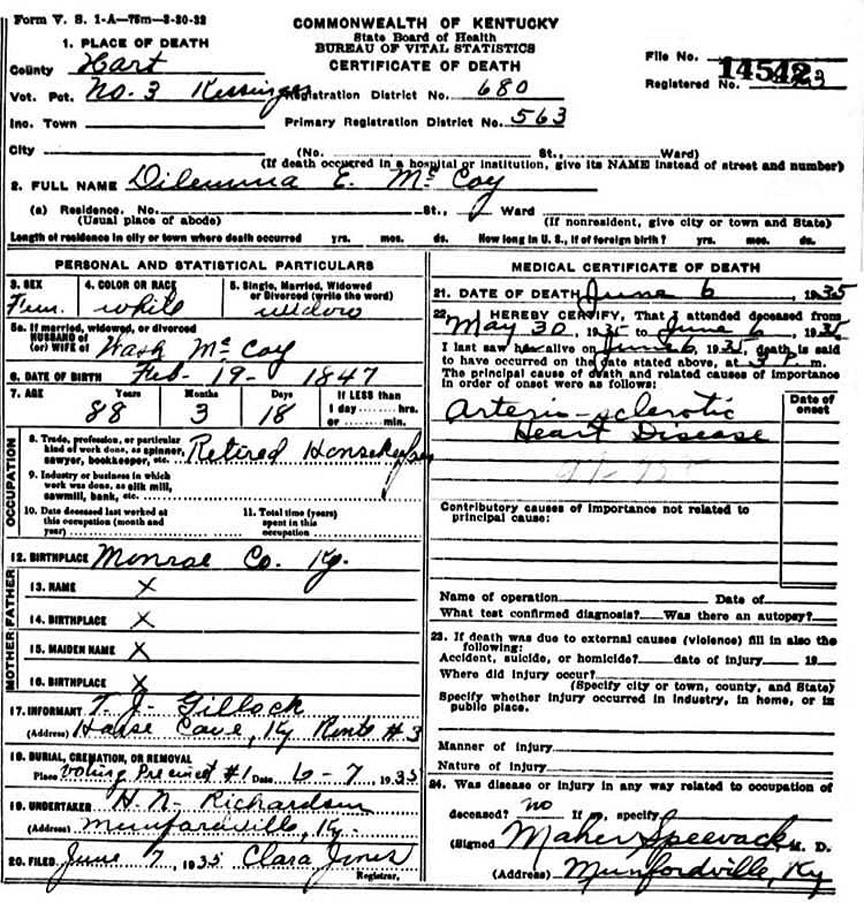 Form V. S. 1-A—75m—3-30-32
COMMONWEALTH OF KENTUCKY
State Board of Health
BUREAU OF VITAL STATISTICS
CERTIFICATE OF DEATH
1. PLACE OF DEATH
County Hart
Vot. Pct. No. 3 Registration District No. 680
Inc. Town Primary Registration District No. 563
File No. 14542
Registered No.
City (No. St., Ward)
(If death occurred in a hospital or institution, give its NAME instead of street and number)
2. FULL NAME Dilemma E. McCoy
(a) Residence. No. St., Ward
(Usual place of abode) (If nonresident, give city or town and State)
Length of residence in city or town where death occurred yrs. mos. ds. How long in U. S., if of foreign birth? yrs. mos. ds.
PERSONAL AND STATISTICAL PARTICULARS
3. SEX Fem.
4. COLOR OR RACE white
5. Single, Married, Widowed or Divorced (write the word) widow
5a. If married, widowed, or divorced
HUSBAND of
(or) WIFE of Wash McCoy
6. DATE OF BIRTH Feb - 19 - 1847
7. AGE Years Months Days If LESS than
88 3 18 1 day ....... hrs.
or ....... min.
OCCUPATION
8. Trade, profession, or particular
kind of work done, as spinner,
sawyer, bookkeeper, etc. Retired Housekeeper
9. Industry or business in which
work was done, as silk mill,
sawmill, bank, etc.
10. Date deceased last worked at
this occupation (month and
year)
11. Total time (years)
spent in this
occupation
12. BIRTHPLACE Monroe Co. Ky.
FATHER
13. NAME X
14. BIRTHPLACE X
MOTHER
15. MAIDEN NAME X
16. BIRTHPLACE X
17. INFORMANT T. J. Gillock
(Address) Horse Cave, Ky Route #3
18. BURIAL, CREMATION, OR REMOVAL
Place Voting Precinct #1 Date 6 - 7, 1935
19. UNDERTAKER H. N. Richardson
(Address) Munfordville, Ky.
20. FILED June 7, 1935 Clara Jones
Registrar.
MEDICAL CERTIFICATE OF DEATH
21. DATE OF DEATH June 6, 1935
22. I HEREBY CERTIFY, That I attended deceased from
May 30, 1935 to June 6, 1935
I last saw her alive on June 6, 1935, death is said
to have occurred on the date stated above, at 3 P. m.
The principal cause of death and related causes of importance
in order of onset were as follows:
Date of
onset
Arterio-sclerotic
Heart Disease
Contributory causes of importance not related to
principal cause:
Name of operation Date of
What test confirmed diagnosis? Was there an autopsy?
23. If death was due to external causes (violence) fill in also the
following:
Accident, suicide, or homicide? date of injury 19
Where did injury occur?
(Specify city or town, county, and State)
Specify whether injury occurred in industry, in home, or in
public place.
Manner of injury
Nature of injury
24. Was disease or injury in any way related to occupation of
deceased? no If so, specify
(Signed Maher Speevack, M. D.
(Address) Munfordville, Ky